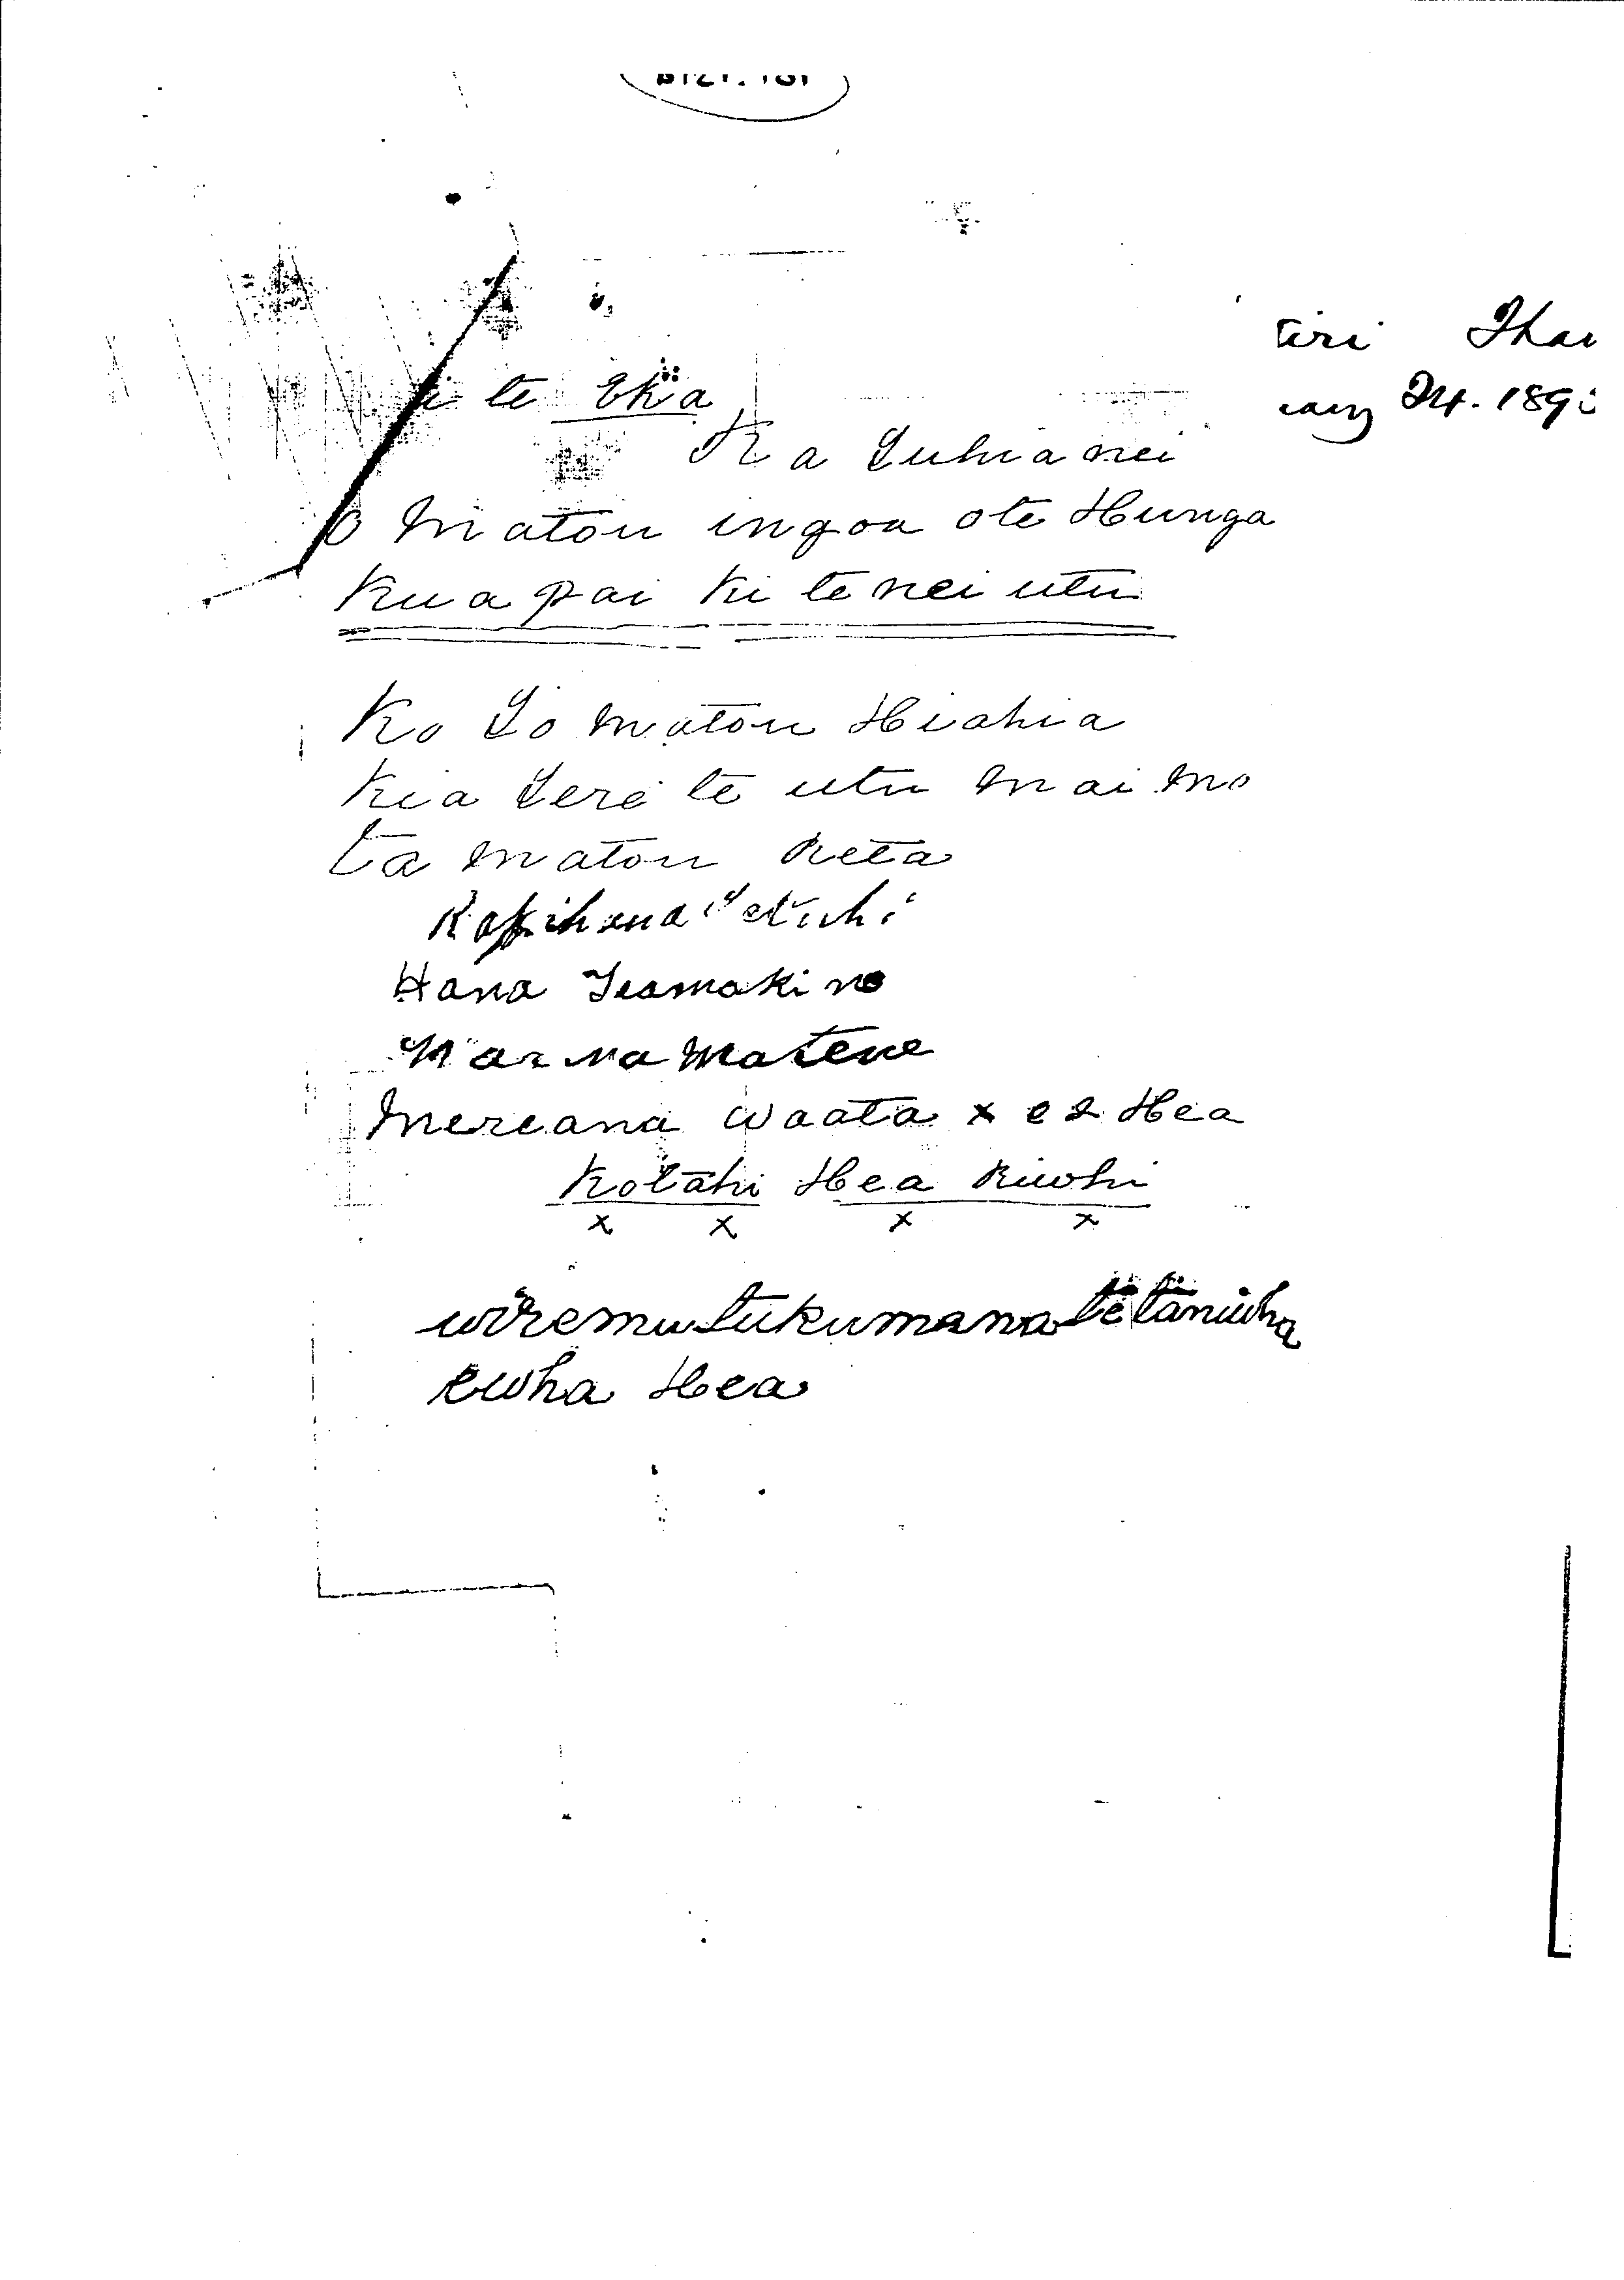 tiri Thai
i te Eka uary 24. 189
Ka Tuhia nei
O Matou ingoa ote Hunga
Kua pai Ki te nei utu
Ko To Matou Hiahia
Kia Tere te utu Mai Mo
ta Matou Reta
Rapihana
Hana Teamoki no
Matene
Mereana Waata x e 2 Hea
Kotahi Hea Riwhi
x x x x
wiremu tukumana te taniwha
ewha Hea